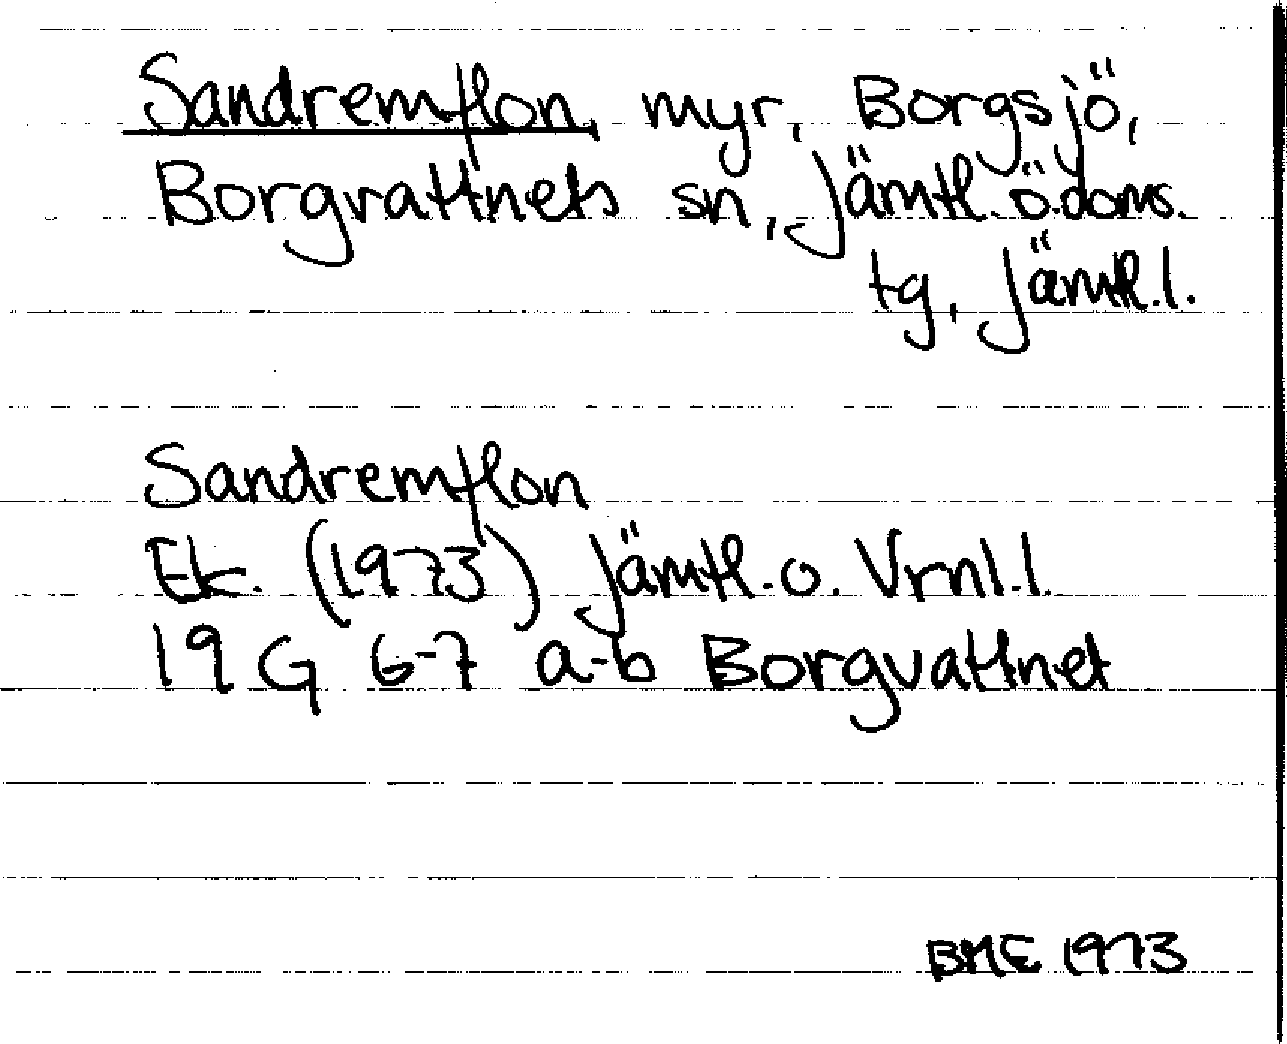 Sandremflon, myr, Borgsjö,
Borgvattnets sn, Jämtl. ö. doms.
tg, Jämtl. l.
Sandremflon
Ek. (1973) Jämtl. o. Vrnl. l.
19 G 6-7 a-b Borgvattnet
BME 1973